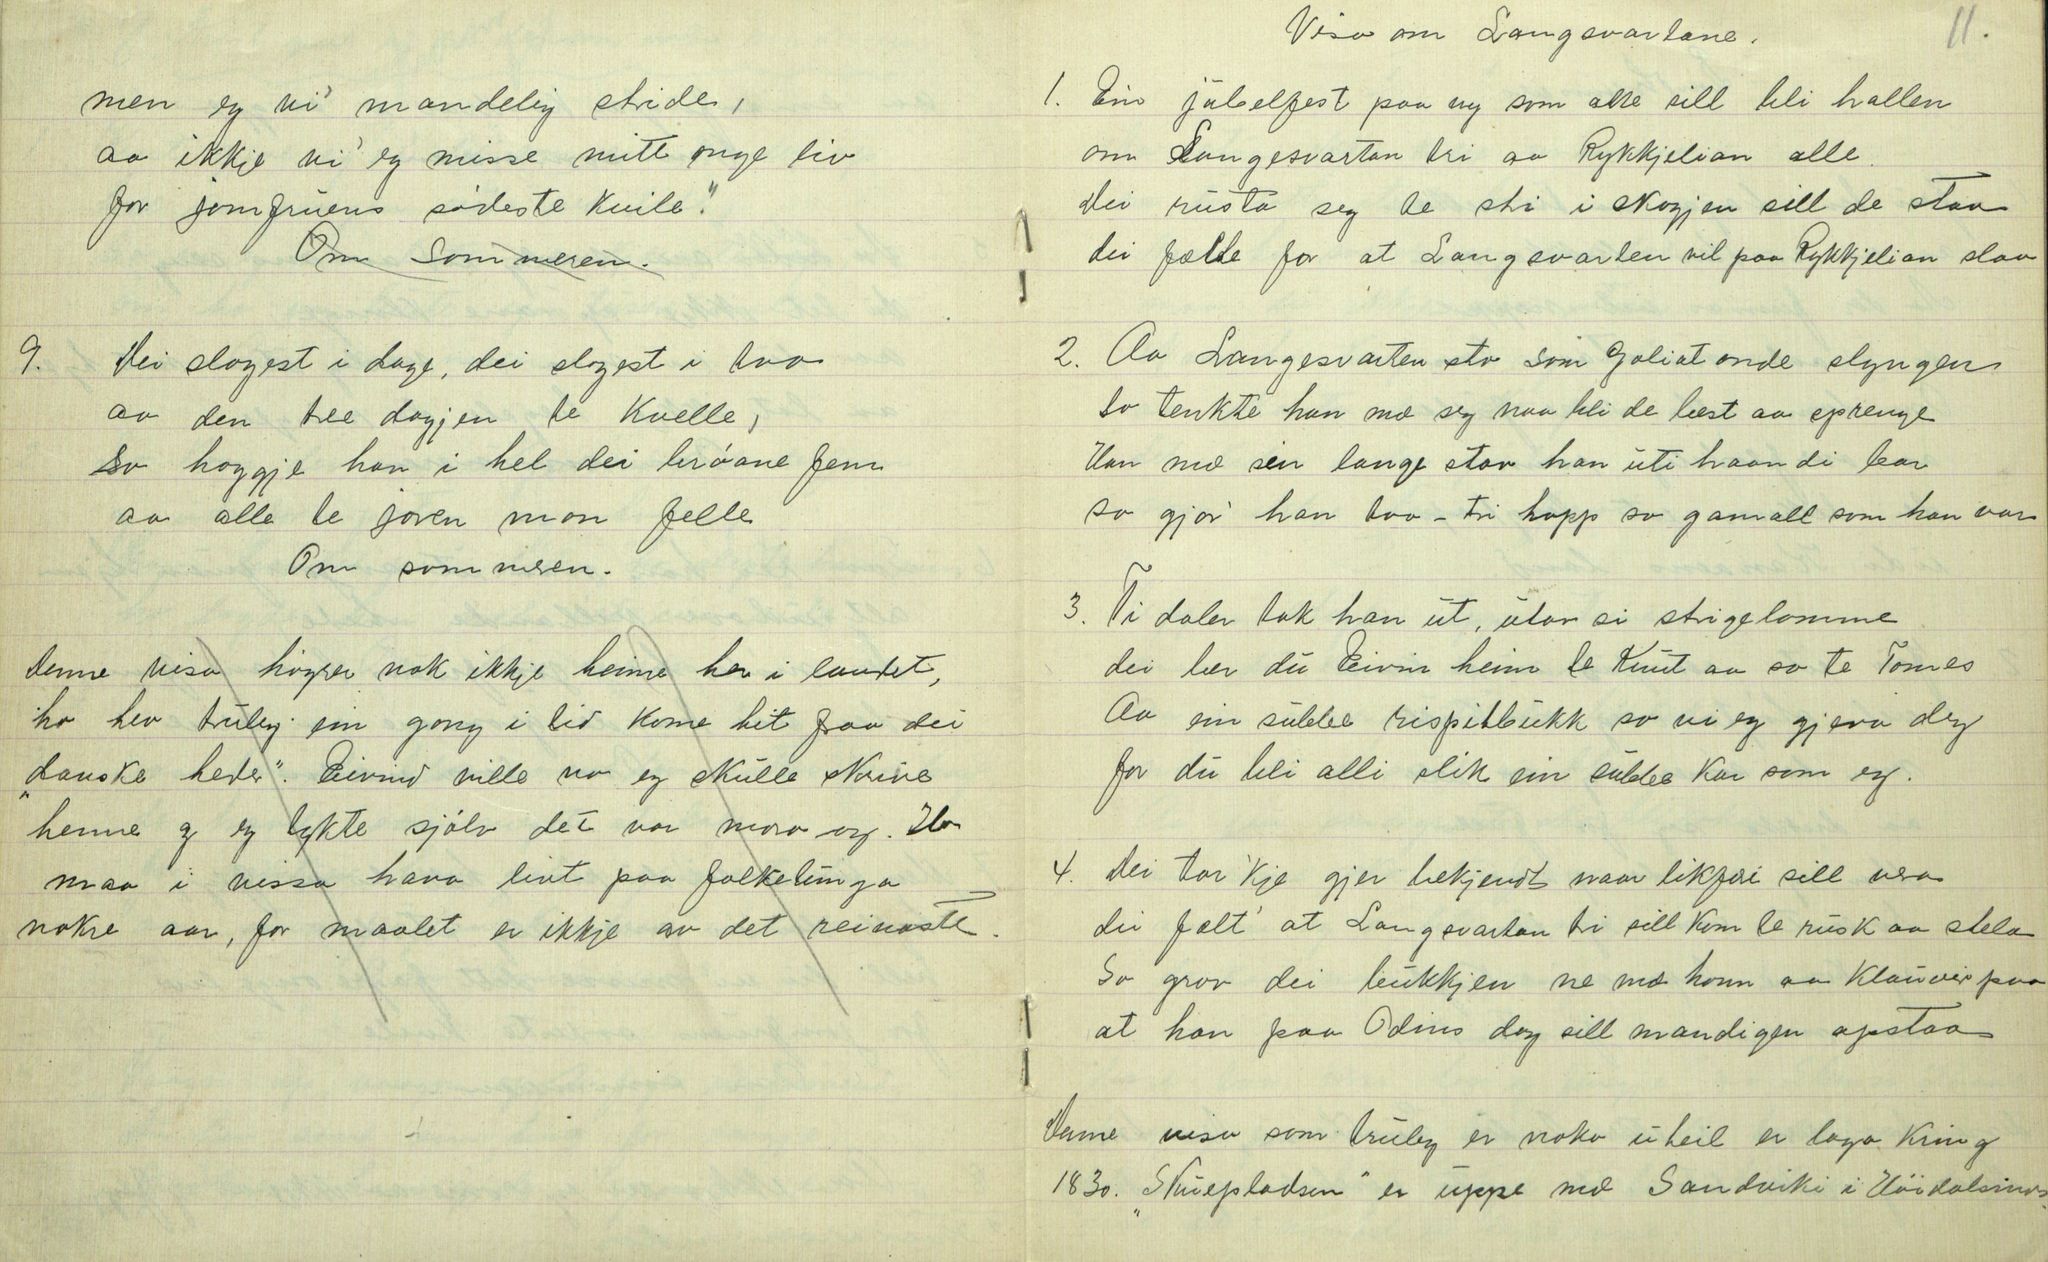 men eg vi' mandeleg stride,
aa ikkje vi' eg misse mitt onge liv
for jomfruens södeste kvile."
Om sommeren.
9. Dei slogest i dage, dei slogest i tvo
aa den tree dagjen te kvelle,
so hoggje han i hel dei bröane fem
aa alle te joren mon felle
Om sommeren.
Denne visa höyrer nok ikkje heime her i landet,
ho hev truleg ein gong i tid kome hit fraa dei
"danske heder". Eivind ville no eg skulle skrive
henne og eg tykte sjölv det var moro og. Ho
maa i vissa hava livt paa folketunga
nokre aar, for maalet er ikkje av det reinaste.
11.
Visa om Langsvartane.
1. Ein jubelfest paa ny som alle sill bli hallen
om Langesvartan tri aa Rykkjelian alle.
Dei rusta seg te stri i skogjen sill de staa
dei fælte for at Langsvarten vil paa Rykkjelian slaa
2. Aa Langesvarten sto som Goliat onde slyngen
so tenkte han mæ seg naa bli de best aa sprenge
Han mæ sin lange stav han uti haandi bar
so gjor' han tvo-tri hopp so gamall som han var
3. Ti daler tok han ut, utav si strigelomme
dei bær du Eivin heim te Knut aa so te Tomes
Aa ein subbe rispitbukk so vi eg gjeva deg
for du bli alli slik ein subbe kar som eg.
4. Dei tor 'kje gjer bekjendt naar likferi sill vera
dei fælt' at Langsvartan tri sill kom te rusk aa stela
So grov dei bukkjen ne mæ honn aa klauvir paa
at han paa Odins dag sill mandigen opstaa
Denne visa som truleg er noko uheil er laga kring
1830. "Skuepladsen" er uppe mæ Sandviki i Höidalsmo.